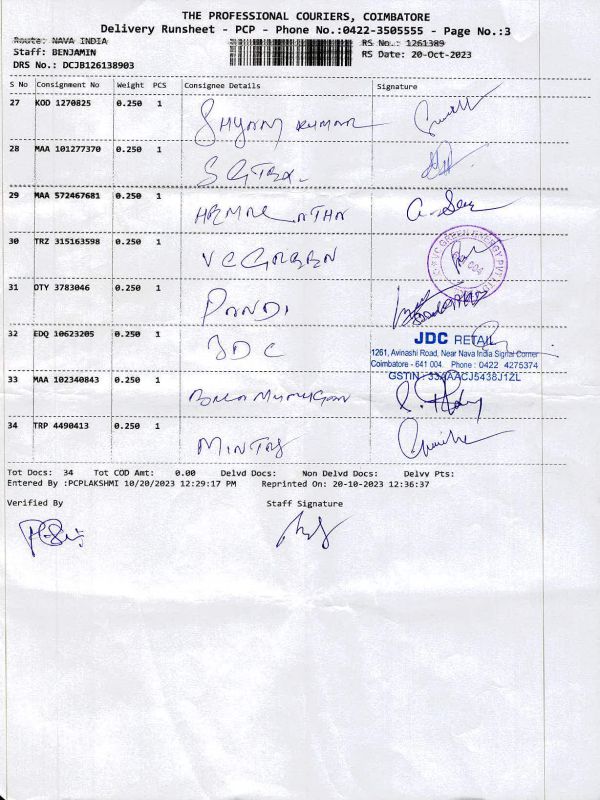 THE PROFESSIONAL COURIERS, COIMBATORE
Delivery Runsheet - PCP - Phone No.:0422-3505555 - Page No.:3
Route: NAVA INDIA
RS No.: 1261389
Staff: BENJAMIN
RS Date: 20-Oct-2023
DRS No.: DCJB126138903
S No Consignment No Weight PCS Consignee Details Signature
27 KOD 1270825 0.250 1 SHYAM KUMAR
28 MAA 101277370 0.250 1
29 MAA 572467681 0.250 1
30 TRZ 315163598 0.250 1 VC GREEN
31 OTY 3783046 0.250 1 PANDI
32 EDQ 10623205 0.250 1 JDC
JDC RETAIL
1261, Avinashi Road, Near Nava India Signal Corner
Coimbatore - 641 004. Phone : 0422 4275374
GSTIN : 33AAACJ5438J1ZL
33 MAA 102340843 0.250 1 BALA MURUGAN
34 TRP 4490413 0.250 1
Tot Docs: 34 Tot COD Amt: 0.00 Delvd Docs: Non Delvd Docs: Delvv Pts:
Entered By :PCPLAKSHMI 10/20/2023 12:29:17 PM Reprinted On: 20-10-2023 12:36:37
Verified By Staff Signature